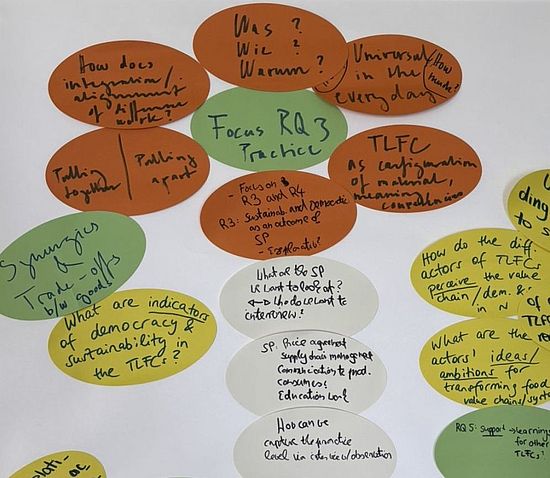 Was ?
Wie ?
Warum ?
How does
integration/
alignment
of difference
work?
Universal
in the
everyday
(How
Focus RQ 3
Practice
Pulling
together
Pulling
apart
TLFC
as configuration
of material,
meaning
competencies
- Focus on
R3 and R4
R3: Sustainab. and Democratic
as an outcome of
SP
- Explorative?
Synergies
&
Trade-offs
b/w goods
What are indicators
of democracy &
sustainability in
the TLFCs?
What are the SP
we want to look at?
↔ Who do we want to
interview?
SP: Price agreement
Supply chain management
Communication to prod.
consumers?
Education work
How can we
capture the practice
level via interview/observation
ding
to s
How do the diff.
actors of TLFCs
perceive the value
chain/dem. &
in N
of
What are the
actors' ideas/
ambitions for
transforming food
value chains/syste
RQ 5: support → learning
for other
TLFCs?
ac